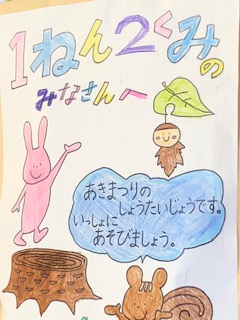 1ねん2くみの
みなさんへ
あきまつりの
しょうたいじょうです。
いっしょに
あそびましょう。